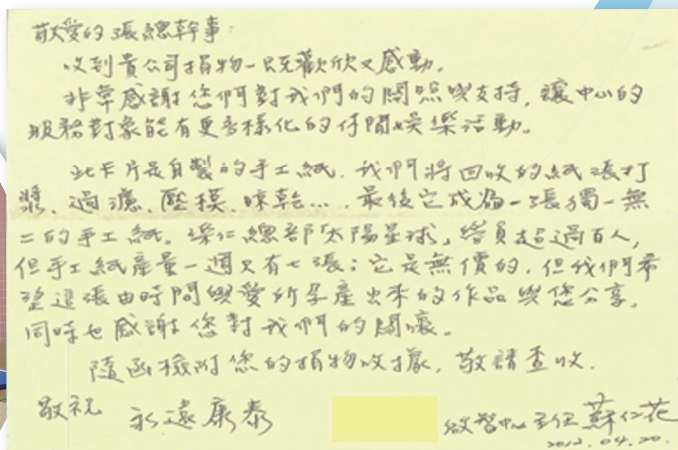 敬愛的張總幹事:
收到貴公司捐物一既歡欣又感動。
非常感謝您們對我們的關照與支持,讓中心的
服務對象能有更多樣化的休閒娛樂活動。
此卡片是自製的手工紙,我們將回收的紙張打
漿、過濾、壓模、晾乾…,最後它成為一張獨一無
二的手工紙。樂仁總部「太陽星球」,學員超過百人,
但手工紙產量一週只有七張;它是無價的,但我們希
望這張由時間與愛所孕產出來的作品與您分享。
同時也感謝您對我們的關懷。
隨函檢附您的捐物收據,敬請查收.
敬祝 永遠康泰
啟智中心主任 蘇仁花
2012.04.20.